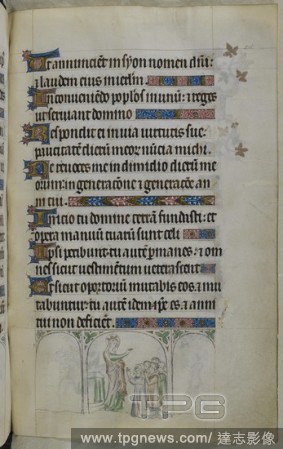 Ut annunciēt in syon nomen dñi:
⁊ laudem eius in ierłm.
In conueniēdo poplos in unū: ⁊ reges
ut seruiant domino
Respondit ei in uia uirtutis sue:
paucitatē dierū meoꝝ nūcia michi.
Ne reuoces me in dimidio dierū me
orum: in generacōne ⁊ generacōē an
ni tui.
Inicio tu domine terrā fundasti: et
opera manuū tuarū sunt celi
Ipsi peribunt tu autē pmanes: ⁊ om
nes sicut uestimētum ueterascent
Et sicut optoriū mutabis eos ⁊ mu
tabuntur: tu autē idem ipse es ⁊ anni
tui non deficient.
TPG
www.tpgnews.com/ 達志影像